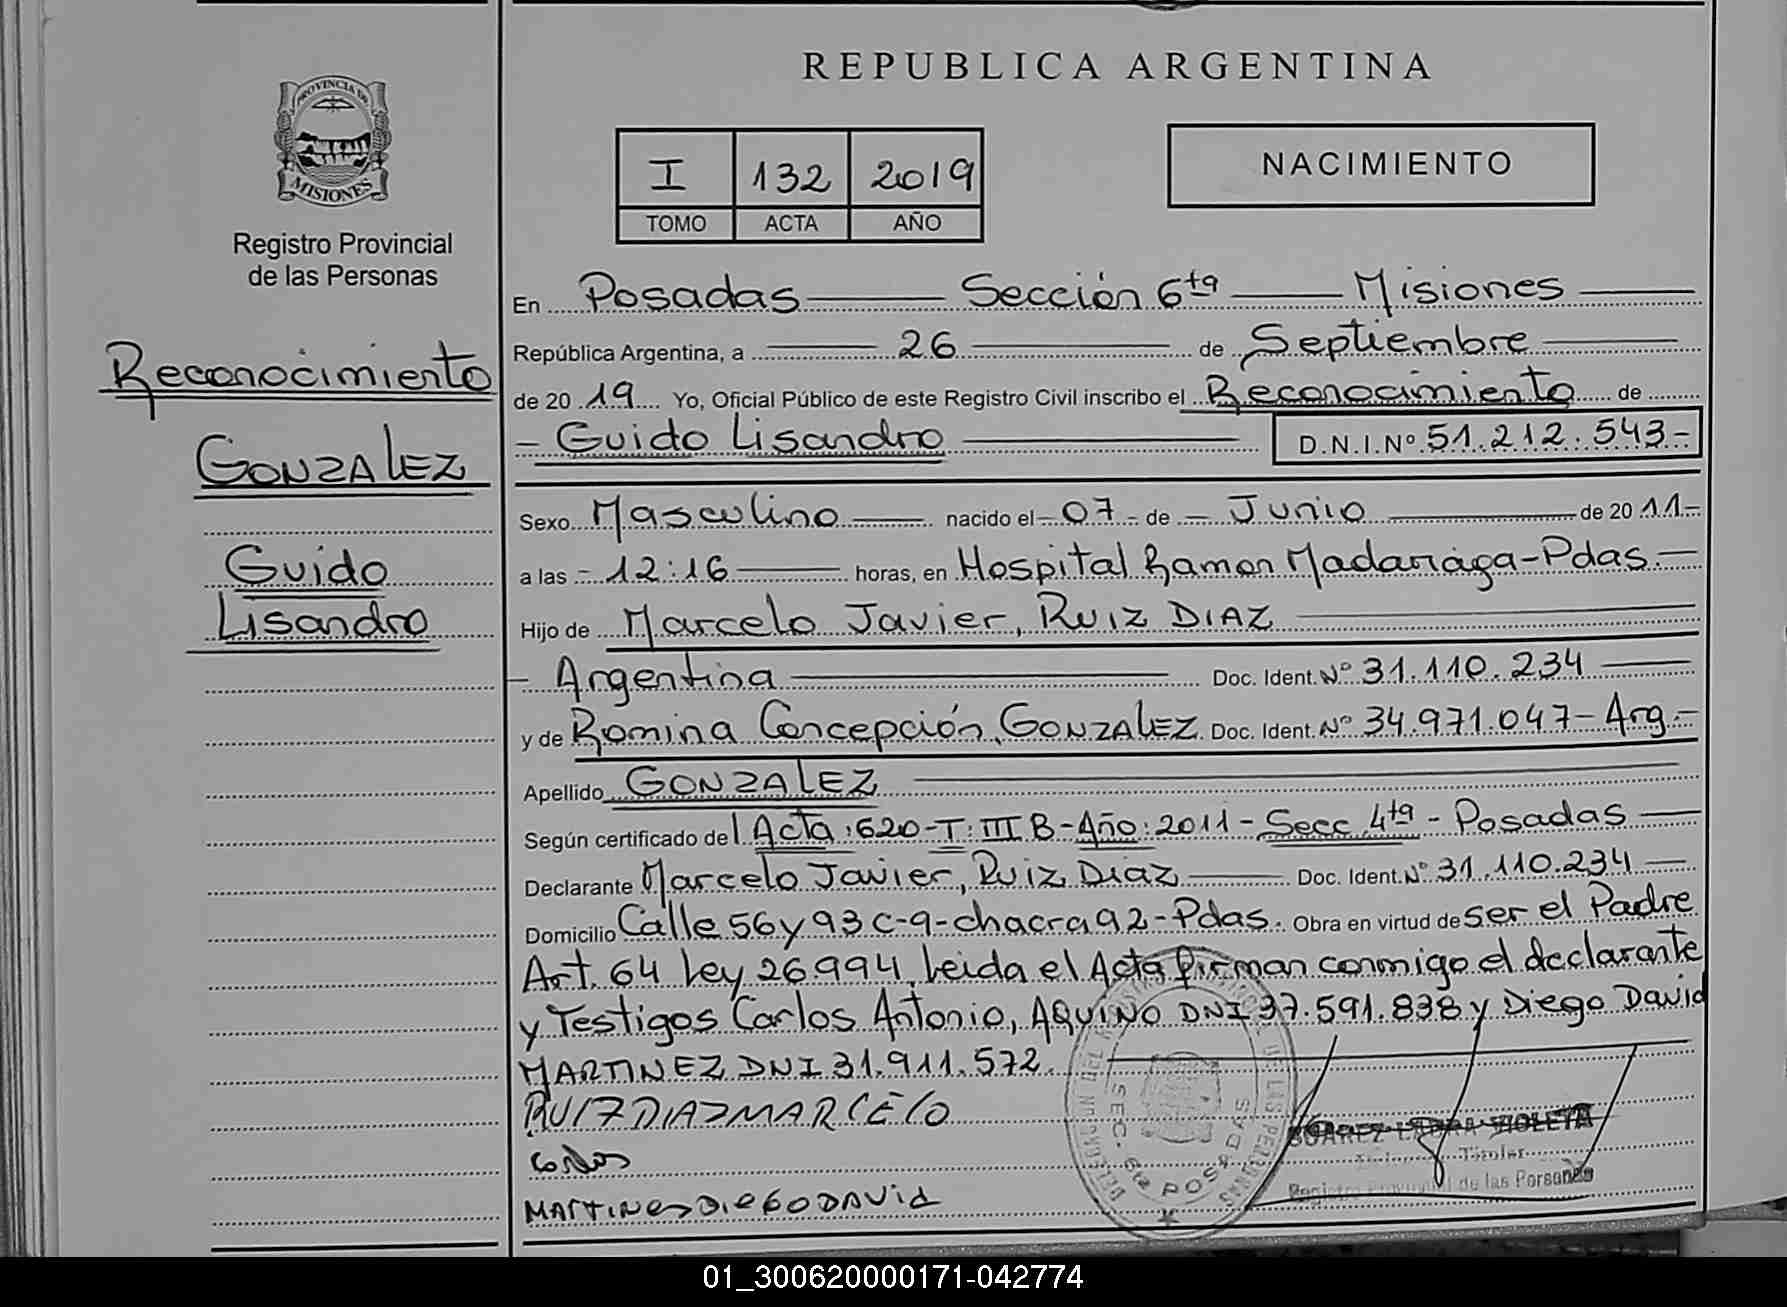 REPUBLICA ARGENTINA
PROVINCIA DE
MISIONES
Registro Provincial
de las Personas
I 132 2019
TOMO ACTA AÑO
NACIMIENTO
Reconocimiento
GONZALEZ
Guido
Lisandro
En Posadas Sección 6ta Misiones
República Argentina, a 26 de Septiembre
de 2019 Yo, Oficial Público de este Registro Civil inscribo el Reconocimiento de
- Guido Lisandro D.N.I.Nº 51.212.543-
Sexo Masculino nacido el - 07 - de - Junio de 2011-
a las - 12:16 horas, en Hospital Ramon Madariaga-Pdas.-
Hijo de Marcelo Javier, RUIZ DIAZ
- Argentina Doc. Ident. Nº 31.110.234
y de Romina Concepción, GONZALEZ Doc. Ident. Nº 34.971.047-Arg-
Apellido GONZALEZ
Según certificado del Acta:620-T:III B-Año:2011-Secc 4ta - Posadas
Declarante Marcelo Javier, Ruiz Diaz Doc. Ident. Nº 31.110.234
Domicilio Calle 56 y 93 c-9-chacra 92-Pdas. Obra en virtud de ser el Padre
Art. 64 Ley 26.994, Leida el Acta firman conmigo el declarante
y Testigos Carlos Antonio, AQUINO DNI 37.591.838 y Diego David
MARTINEZ DNI 31.911.572.
RUIZ DIAZ MARCELO
Carlos
MARTINES DIEGO DAVID
SEC. 6ta POSADAS
SUAREZ LAURA VIOLETA
Titular
Registro Provincial de las Personas
01_300620000171-042774